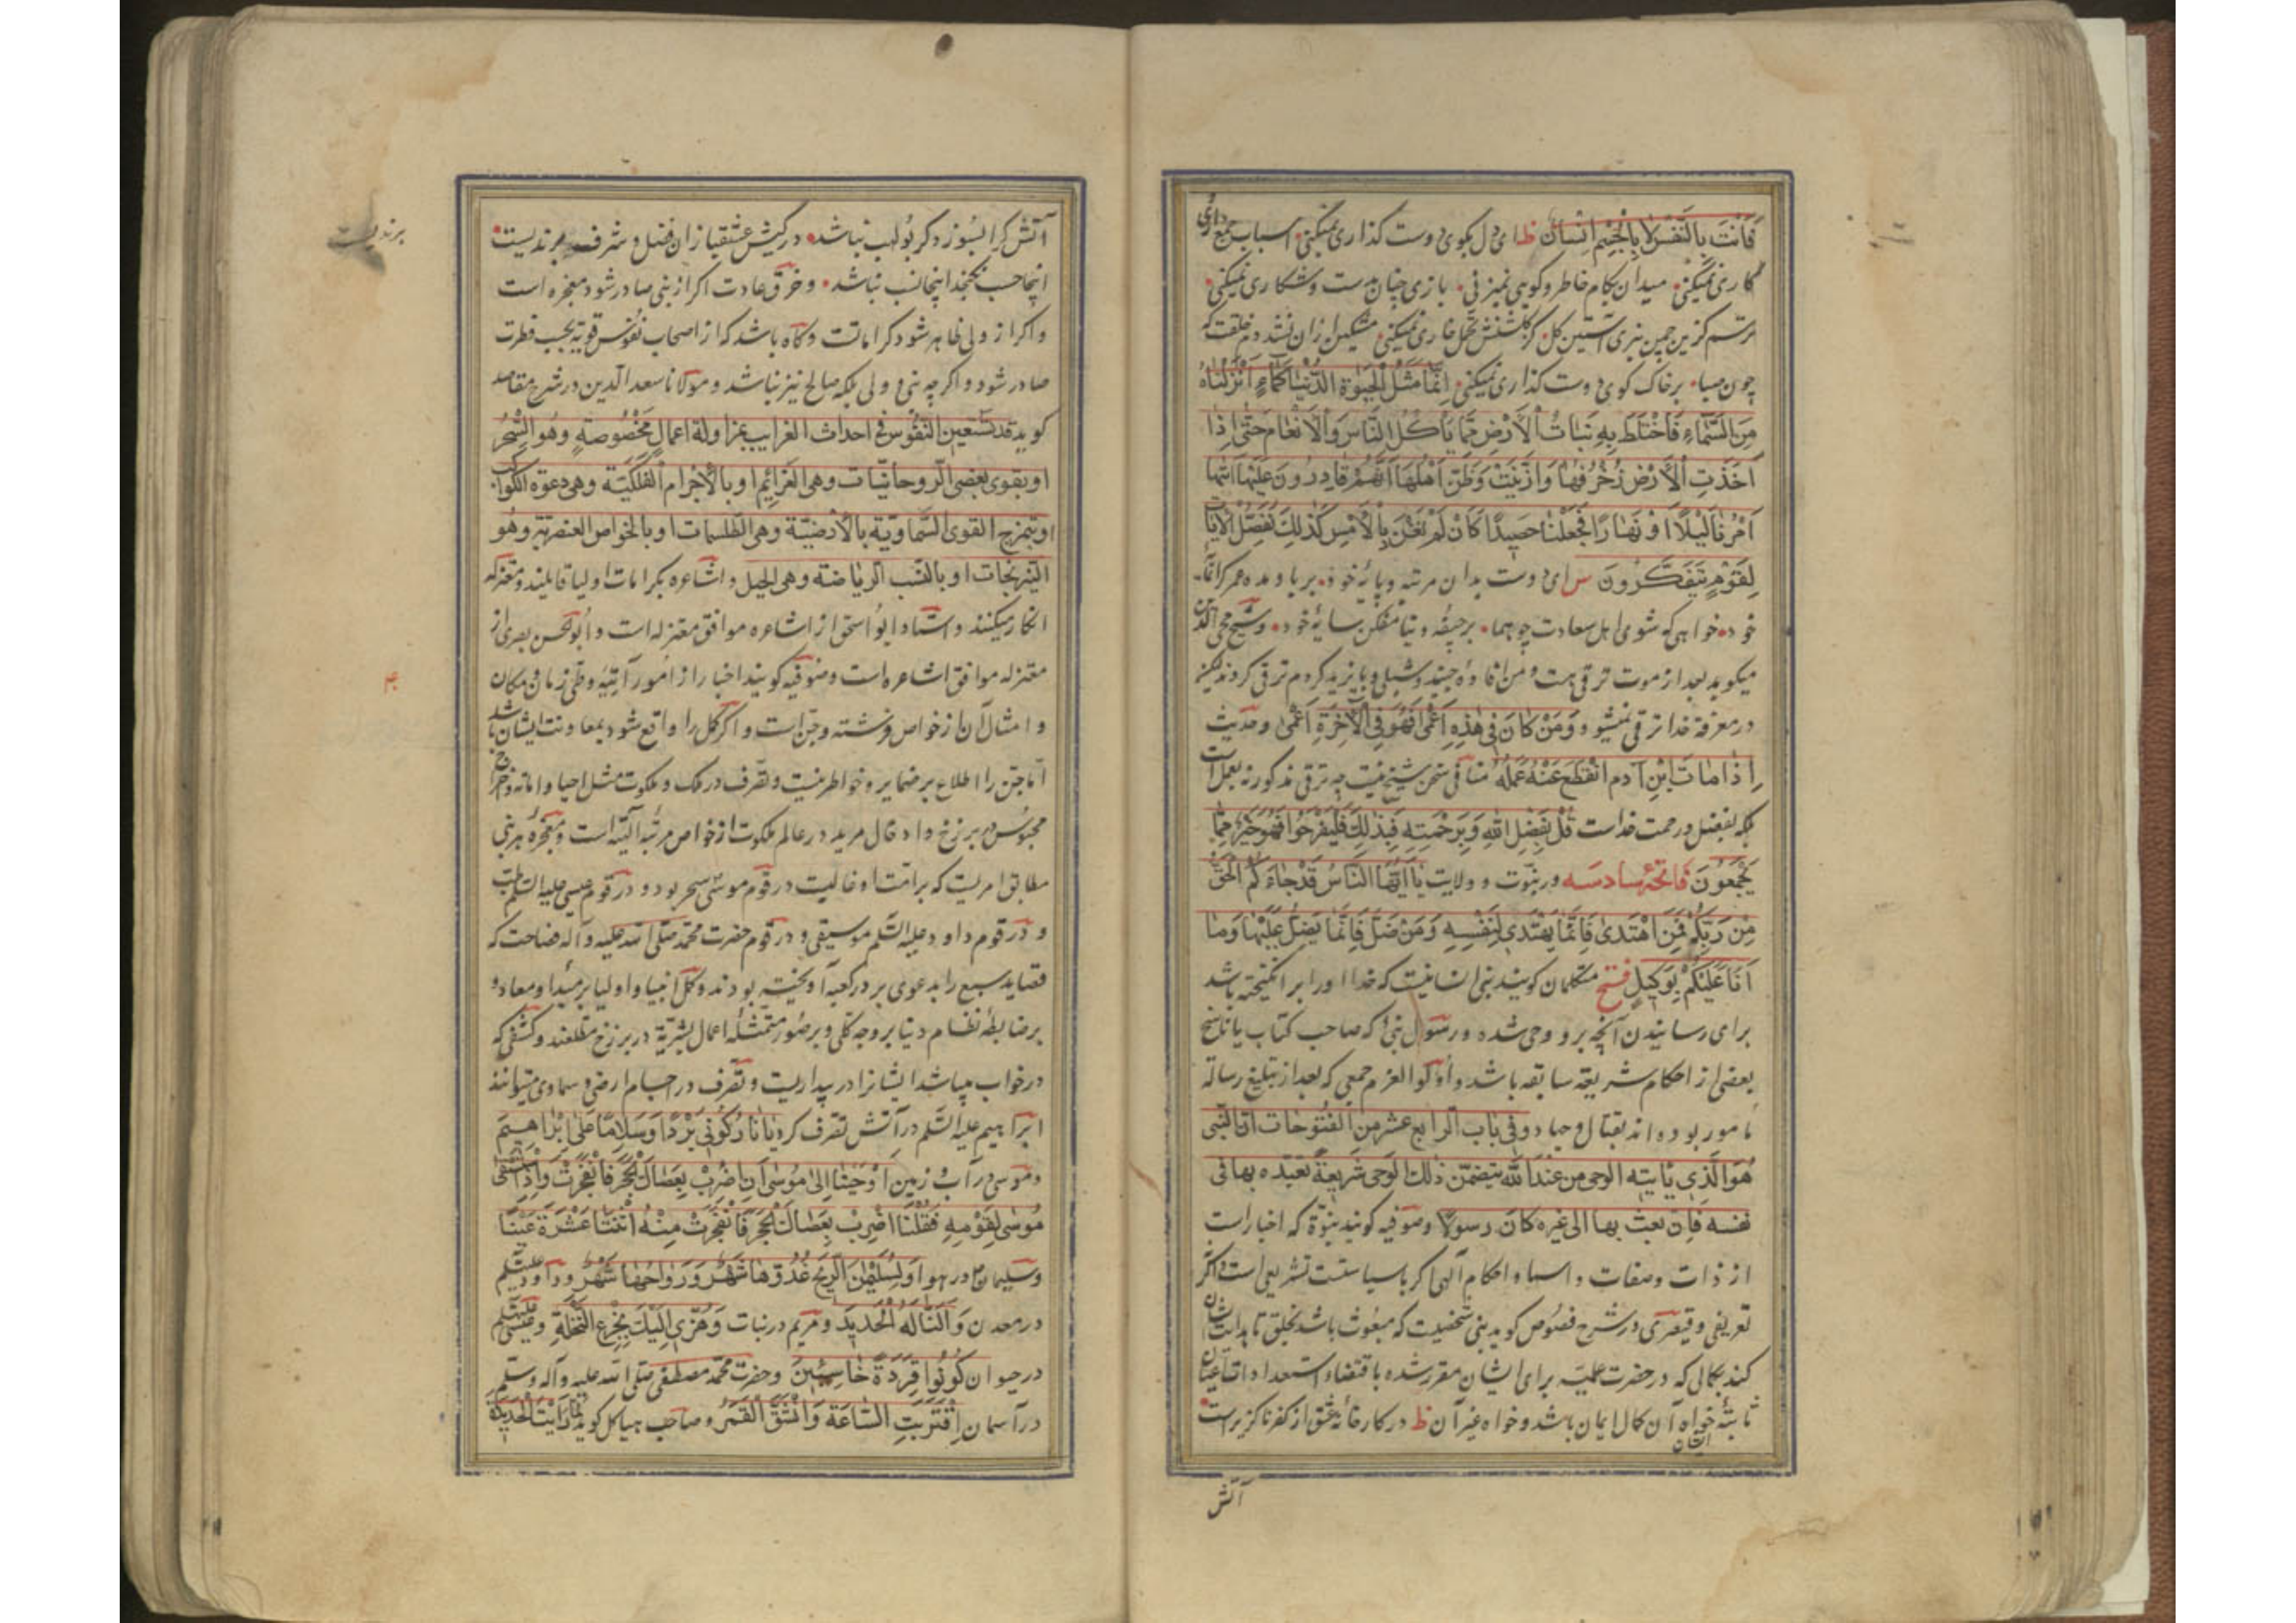 فَاَنْتَ بِالنَّفْسِ لا بِالْجِسْمِ اِنْسانُ ظ ای دل بکوی دوست کذاری نمیکنی اسباب جمع داری
کاری نمیکنی میدان بکام خاطر و کویی نمیزنی بازی چنان بدست و شکاری نمیکنی
ترسم کزین چمن نبری آستین کل کز کلشنش تحمل خاری نمیکنی مشکین از ان نشد دم خلقت که
چون صبا بر خاک کوی دوست کذاری نمیکنی اِنَّما مَثَلُ الْحَیوةِ الدُّنْیا کَماءٍ اَنْزَلْناهُ
مِنَ السَّماءِ فَاخْتَلَطَ بِهِ نَباتُ الْاَرْضِ مِمّا یَاْکُلُ النّاسُ وَالْاَنْعامُ حَتّی اِذا
اَخَذَتِ الْاَرْضُ زُخْرُفَها وَازَّیَّنَتْ وَظَنَّ اَهْلُها اَنَّهُمْ قادِرُونَ عَلَیْها اَتیها
اَمْرُنا لَیْلًا اَوْ نَهارًا فَجَعَلْناها حَصِیدًا کَاَنْ لَمْ تَغْنَ بِالْاَمْسِ کَذلِكَ نُفَصِّلُ الْایاتِ
لِقَوْمٍ یَتَفَکَّرُونَ س ای دوست بدان مرتبه و پایهٔ خود بر باد مده عمر کرانمایهٔ
خود خواهی که شوی اهل سعادت چو هما بر جیفه دنیا مفکن سایهٔ خود و شیخ محی الدین
میکوید بعد از موت ترقی هست و من افاده جنید و شبلی و بایزید کردم ترقی کردند لیکن
در معرفة خدا ترقی نمیشود وَمَنْ کانَ فی هذِهِ اَعْمی فَهُوَ فِی الْاخِرَةِ اَعْمی و حدیث
اِذا ماتَ ابْنِ آدم انْقَطَعَ عَنْهُ عَمَلُهُ منافی سخن شیخ نیست چه ترقی مذکور نه بعمل است
بلکه بفضل و رحمت خداست قُلْ بِفَضْلِ اللهِ وَبِرَحْمَتِهِ فَبِذلِكَ فَلْیَفْرَحُوا هُوَ خَیْرٌ مِمّا
یَجْمَعُونَ فاتحهٔ سادسه در نبوت و ولایت یا اَیُّهَا النّاسُ قَدْ جاءَکُمُ الْحَقُّ
مِنْ رَبِّکُمْ فَمَنِ اهْتَدی فَاِنَّما یَهْتَدی لِنَفْسِهِ وَمَنْ ضَلَّ فَاِنَّما یَضِلُّ عَلَیْها وَما
اَنَا عَلَیْکُمْ بِوَکِیلٍ فتح متکلمان کویند نبی انسانیست که خدا او را بر انکیخته باشد
برای رسانیدن آنچه برو وحی شده و رسول نبی که صاحب کتاب یا ناسخ
بعضی از احکام شریعة سابقه باشد و اولو العزم جمعی که بعد از تبلیغ رسالة
مامور بوده اند بقتال و جهاد و فی باب الرابع عشر من الفتوحات ان النبی
هو الذی یأتیه الوحی من عند الله یتضمن ذلك الوحی شریعة تعبده بها فی
نفسه فان بعث بها الی غیره کان رسولا و صوفیه کویند نبوة که اخبار است
از ذات و صفات و اسما و احکام آلهی اکر با سیاستست تشریعی است و اکر
تعریفی و قیصری در شرح فصوص کوید نبی شخصیست که مبعوث باشد بخلق تا هدایت ایشان
کند بکمالی که در حضرت علمیّه برای ایشان مقرر شده باقتضاء استعدادات اعیان
ثابتهٔ ایشان خواه آن کمال ایمان باشد و خواه غیر آن ظ در کارخانهٔ عشق از کفر ناکزیر است
آتش
آتش کرا بسوزد کر بولهب نباشد در کیش عشقبازان فضل و شرف برندیست
اینجا حسب نکنجد اینجا نسب نباشد و خرق عادت اکر از نبی صادر شود معجزه است
و اکر از ولی ظاهر شود کراماتست و کاه باشد که از اصحاب نفوس قویه بحسب فطرت
صادر شود و اکر چه نبی و ولی بلکه صالح نیز نباشد و مولانا سعد الدین در شرح مقاصد
کوید قد تستعین النفوس فی احداث الغرایب بمزاولة اعمال مخصوصة وهو السحر
او بقوی بعض الروحانیات وهی العزائم او بالاجرام الفلکیة وهی دعوة الکواکب
او بتمزیج القوی السماویة بالارضیة وهی الطلسمات او بالخواص العنصریة وهو
النیرنجات او بالنسب الریاضة وهی الحیل و اشاعره بکرامات اولیا قایلند و معتزله
انکار میکنند و استاد ابو اسحق از اشاعره موافق معتزله است و ابو الحسن بصری از
معتزله موافق اشاعره است و صوفیه کویند اخبار از امور آتیه و طی زمان و مکان
و امثال آن از خواص فرشته و جن است و اکر کمل را واقع شود بمعاونت ایشان باشد
اما جن را اطلاع بر ضمایر و خواطر نیست و تصرف در ملک و ملکوت مثل احیا و اماته و اخراج
محبوس در برزخ و ادخال مرید در عالم ملکوت از خواص مرتبه الهیّه است و معجزه هر نبی
مطابق امریست که بر امت او غالبست در قوم موسی سحر بود و در قوم عیسی علیه السلم طب
و در قوم داود علیه السلم موسیقی و در قوم حضرت محمد صلی الله علیه و آله فصاحت که
قصاید سبع را بدعوی بر در کعبه آویخته بودند و کمل انبیا و اولیا بر مبدا و معاد و
بر ضابطهٔ نظام دنیا بر وجه کلی و بر صور متمثلهٔ اعمال بشریّة در برزخ مطلعند و کشفی که
در خواب میباشد ایشانرا در بیداریست و تصرف در اجسام ارضی و سماوی میتوانند
ابراهیم علیه السلم در آتش تصرف کرد یا نارُ کُونی بَرْدًا وَسَلامًا عَلی اِبْراهیمَ
و موسی در آب و زمین اَوْحَیْنا اِلی مُوسی اَنِ اضْرِبْ بِعَصاكَ الْحَجَرَ فَانْفَجَرَتْ وَاِذِ اسْتَسْقی
مُوسی لِقَوْمِهِ فَقُلْنَا اضْرِبْ بِعَصاكَ الْحَجَرَ فَانْفَجَرَتْ مِنْهُ اثْنَتا عَشْرَةَ عَیْنًا
و سلیمان در هوا وَلِسُلَیْمنَ الرّیحَ غُدُوُّها شَهْرٌ وَرَواحُها شَهْرٌ و داود علیه السلم
در معدن وَاَلَنّا لَهُ الْحَدیدَ و مریم در نبات وَهُزّی اِلَیْكِ بِجِذْعِ النَّخْلَةِ و عیسی علیه السلم
در حیوان کُونُوا قِرَدَةً خاسِئینَ و حضرت محمد مصطفی صلی الله علیه و آله و سلم
در آسمان اِقْتَرَبَتِ السّاعَةُ وَانْشَقَّ الْقَمَرُ و صاحب هیاکل کوید لما رایت الحدیدة
برندیست